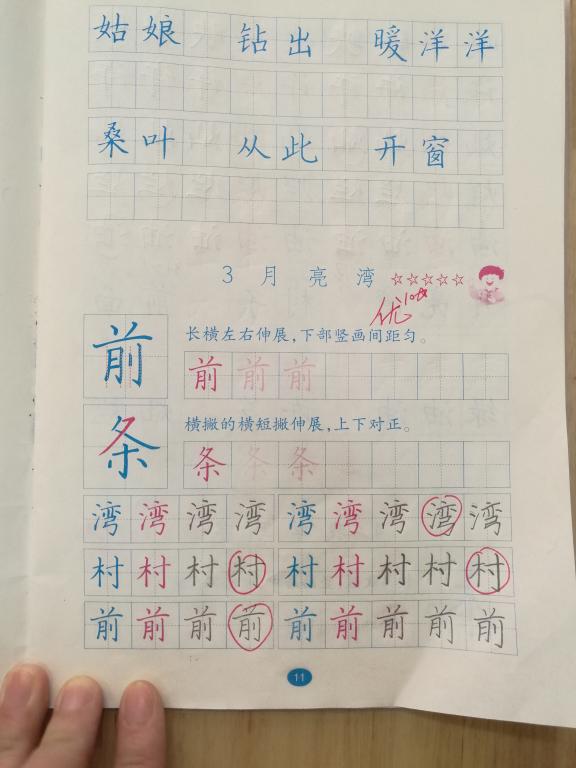 姑娘 钻出 暖洋洋
桑叶 从此 开窗
3 月亮湾 ☆☆☆☆☆
优
前
长横左右伸展，下部竖画间距匀。
前前前
条
横撇的横短撇伸展，上下对正。
条条条
湾湾湾湾 湾湾湾湾湾
村村村村 村村村村村
前前前前 前前前前前
11